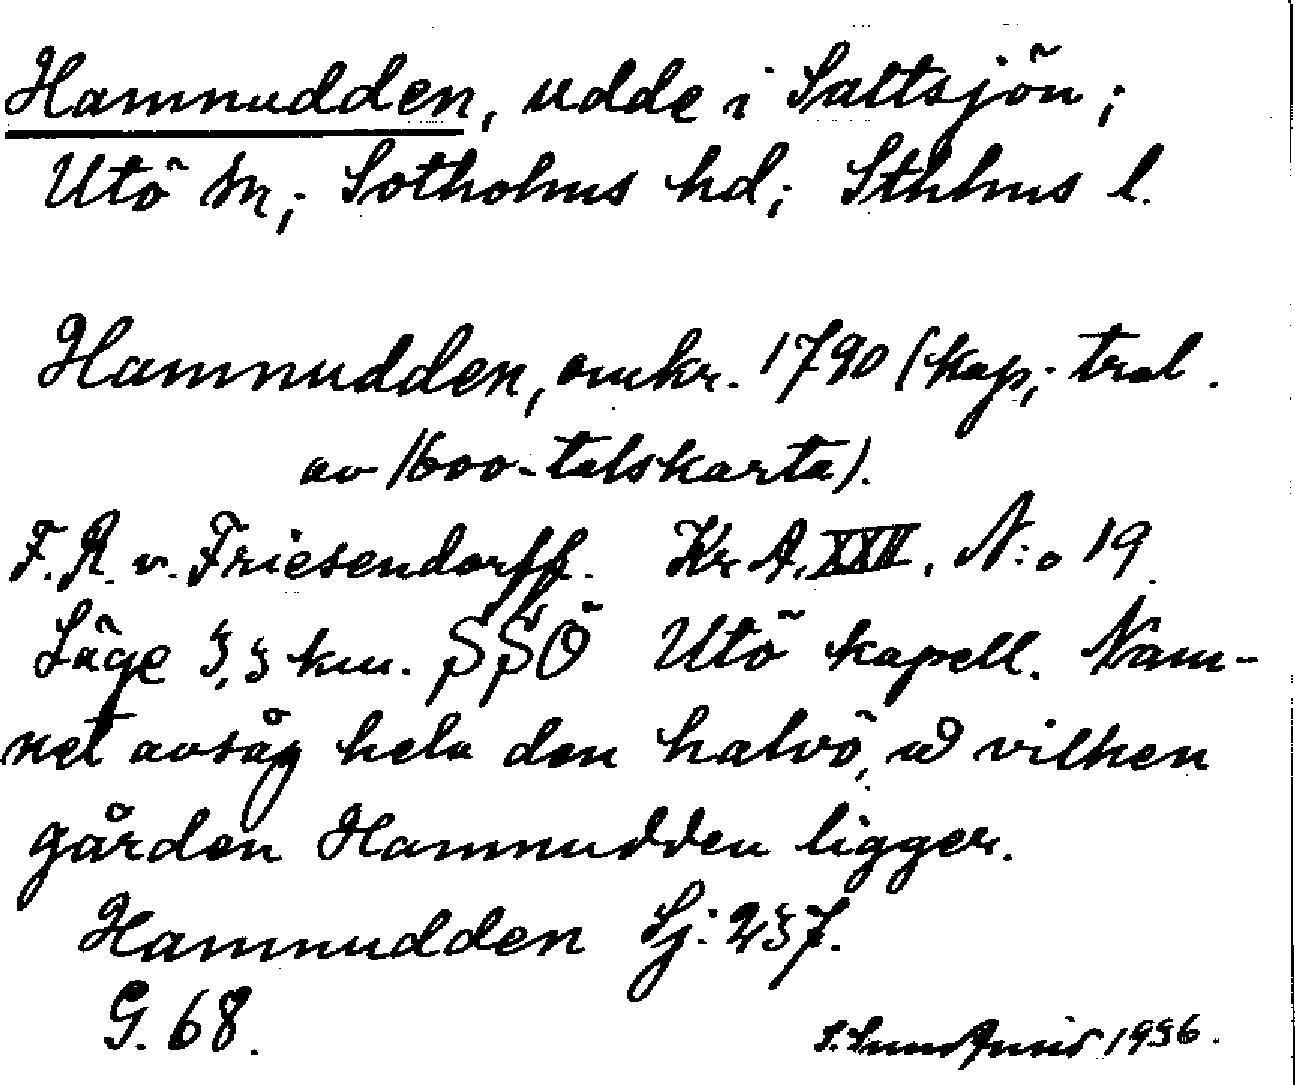 Hamnudden, udde i Saltsjön;
Utö sn; Sotholms hd; Sthlms l.
Hamnudden, omkr. 1790 (kop; trol.
av 1600-talskarta).
F. R. v. Friesendorff. Kr. A. XXII. N:o 19.
Läge 3,3 km. SSÖ Utö kapell. Nam-
net avsåg hela den halvö, å vilken
gården Hamnudden ligger.
Hamnudden Sj: 237.
G. 68.
1936.